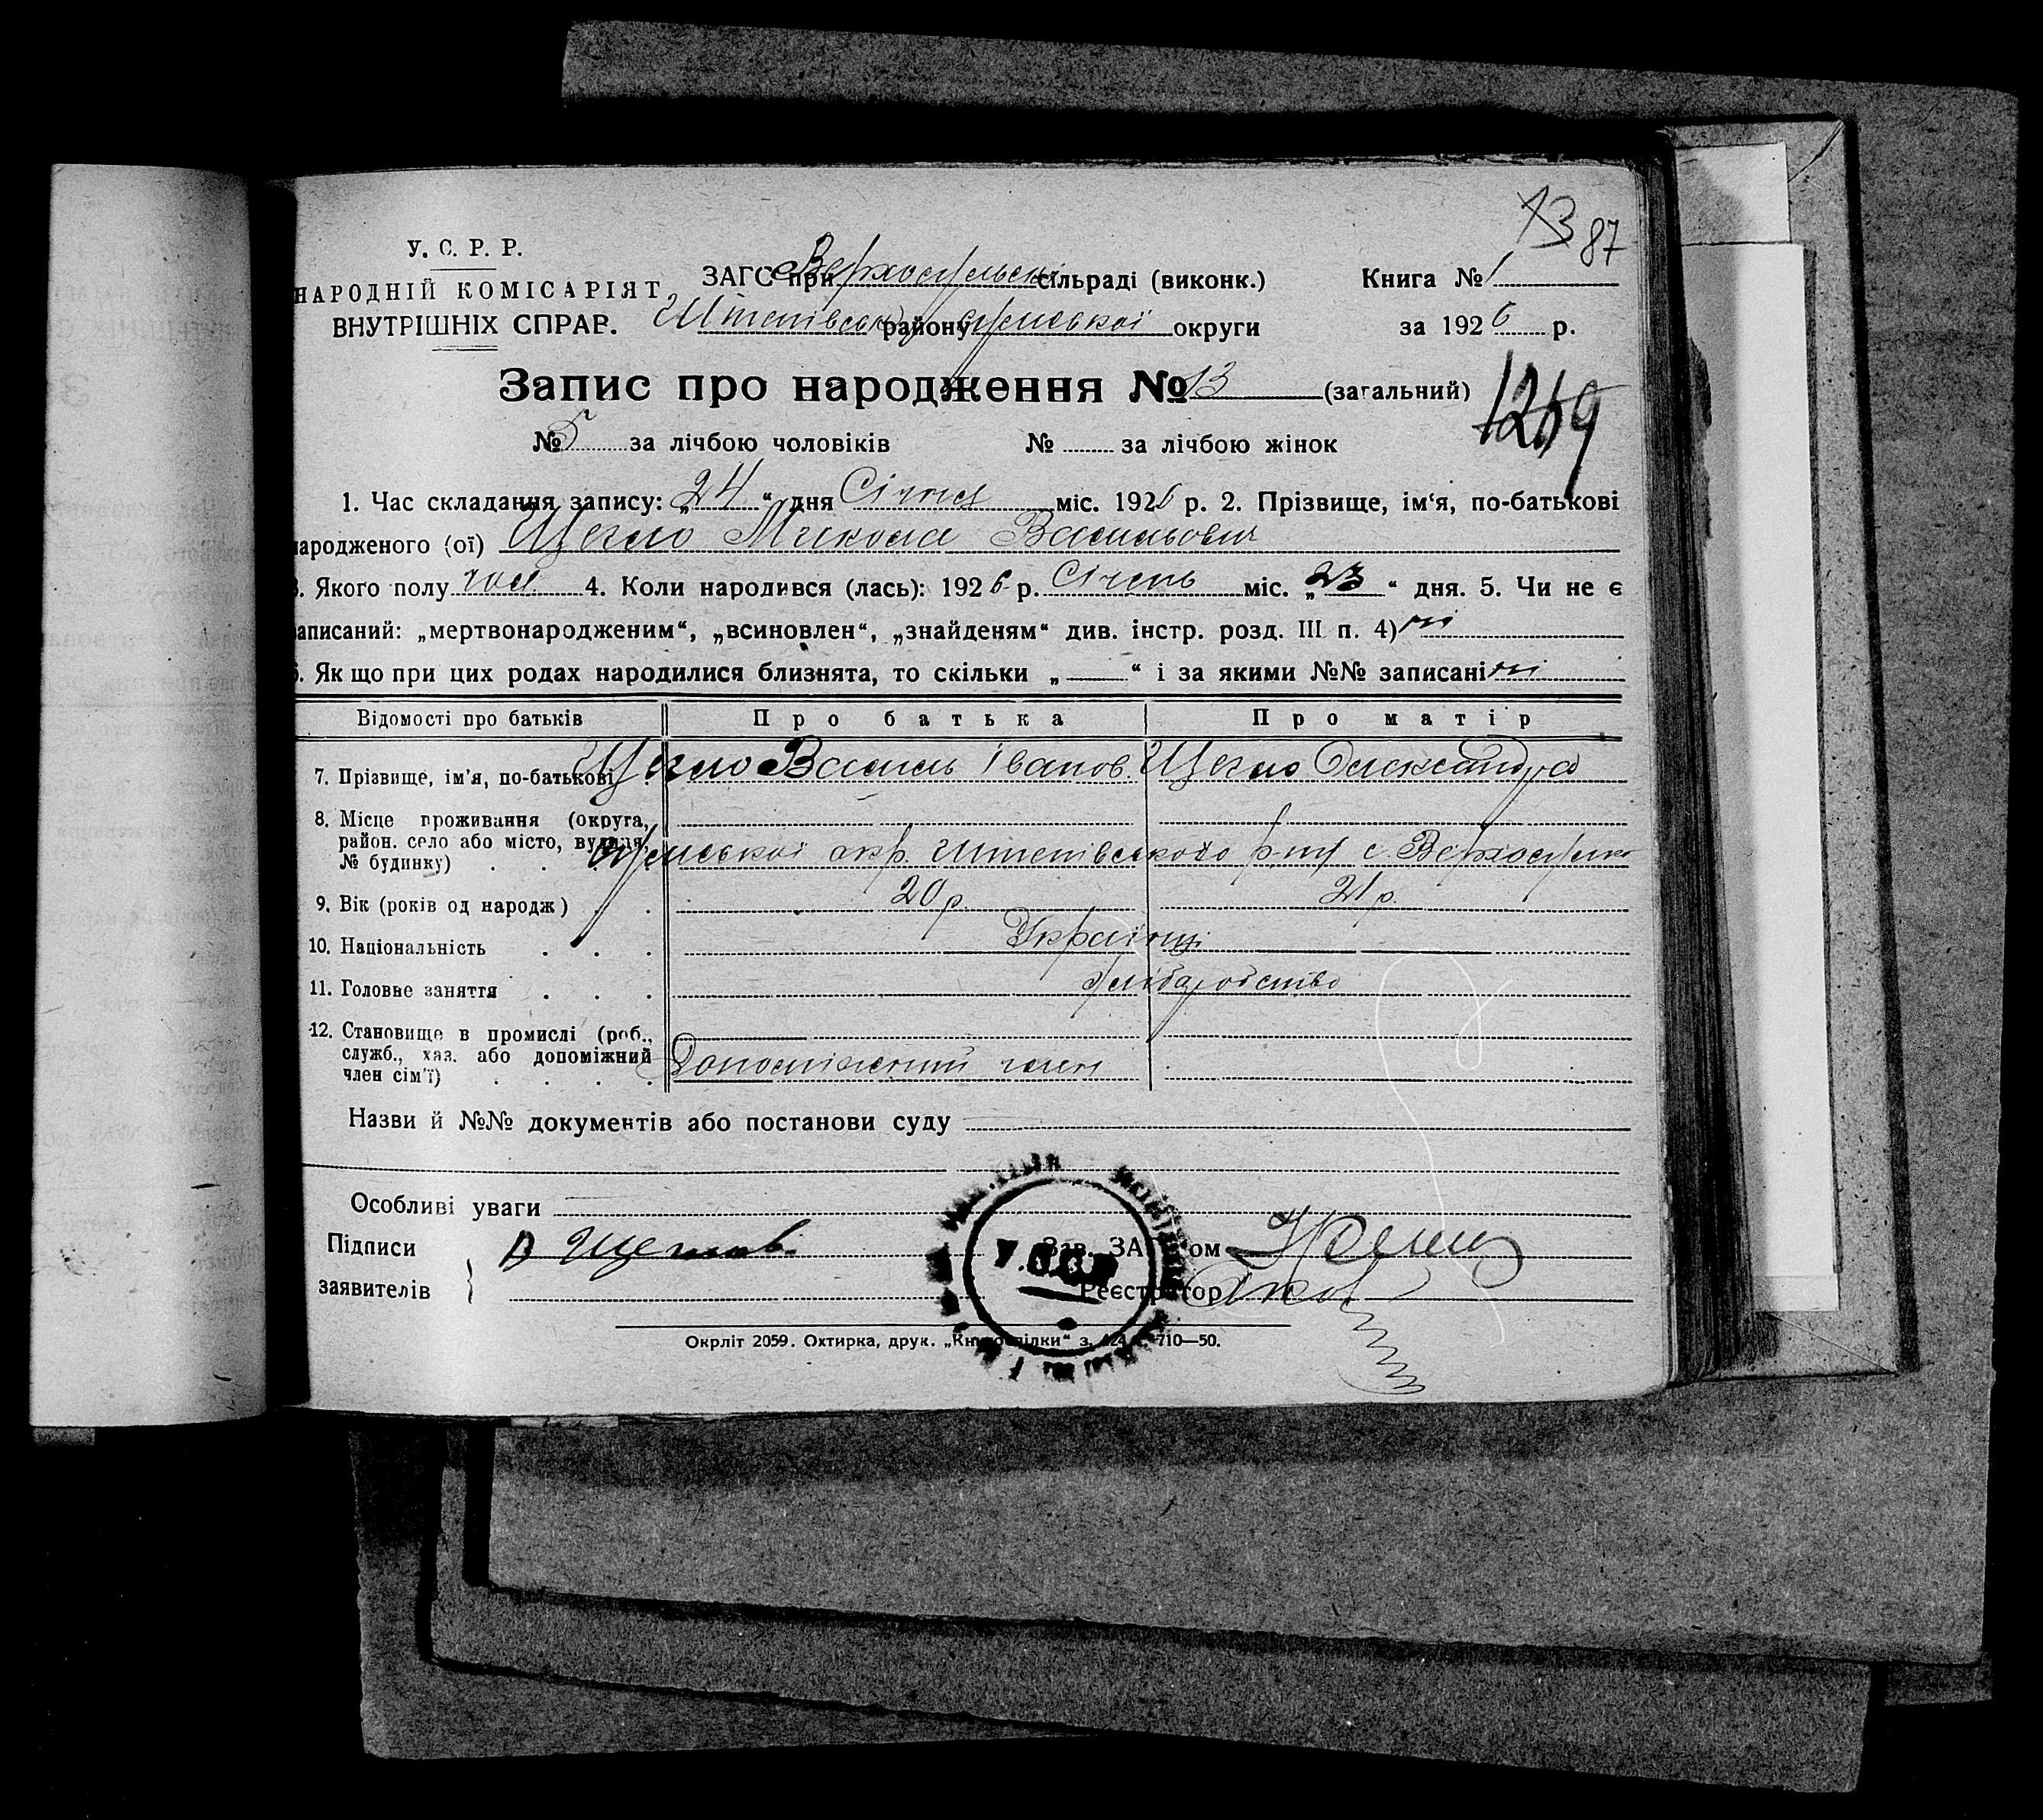 13 87
У. С. Р. Р.
НАРОДНІЙ КОМІСАРІЯТ
ВНУТРІШНІХ СПРАВ.
ЗАГС при Верхосульськ сільраді (виконк.)
Книга № 1
Штепівськ району Сумської округи
за 1926 р.
Запис про народження № 13 (загальний)
1269
№ 5 за лічбою чоловіків № за лічбою жінок
1. Час складання запису: „24“ дня Січня міс. 1926 р. 2. Прізвище, ім‘я, по-батькові
народженого (ої) Щегло Микола Васильович
3. Якого полу чол. 4. Коли народився (лась): 1926 р. Січень міс. „23“ дня. 5. Чи не є
записаний: „мертвонародженим“, „всиновлен“, „знайденям“ див. інстр. розд. III п. 4) ні
6. Як що при цих родах народилися близнята, то скільки „——“ і за якими №№ записані ні
Відомості про батьків Про батька Про матір
7. Прізвище, ім’я, по-батькові Щегло Василь Іванов. Щегло Олександра
8. Місце проживання (округа,
район. село або місто, вулиця,
№ будинку) Сумської окр. Штепівського р-ну с. Верхосулка
9. Вік (років од народж) 20 р. 21 р.
10. Національність Українці
11. Головне заняття хліборобство
12. Становище в промислі (роб.,
служб., хаз. або допоміжний
член сім’ї) Допоміжний член
Назви й №№ документів або постанови суду
Особливі уваги
Підписи
заявителів
В
Зав. ЗАГ‘ом
У.С.Р.Р.
Реєстратор
Окрліт 2059. Охтирка, друк. „Книгоспілки“ з. 424 710—50.